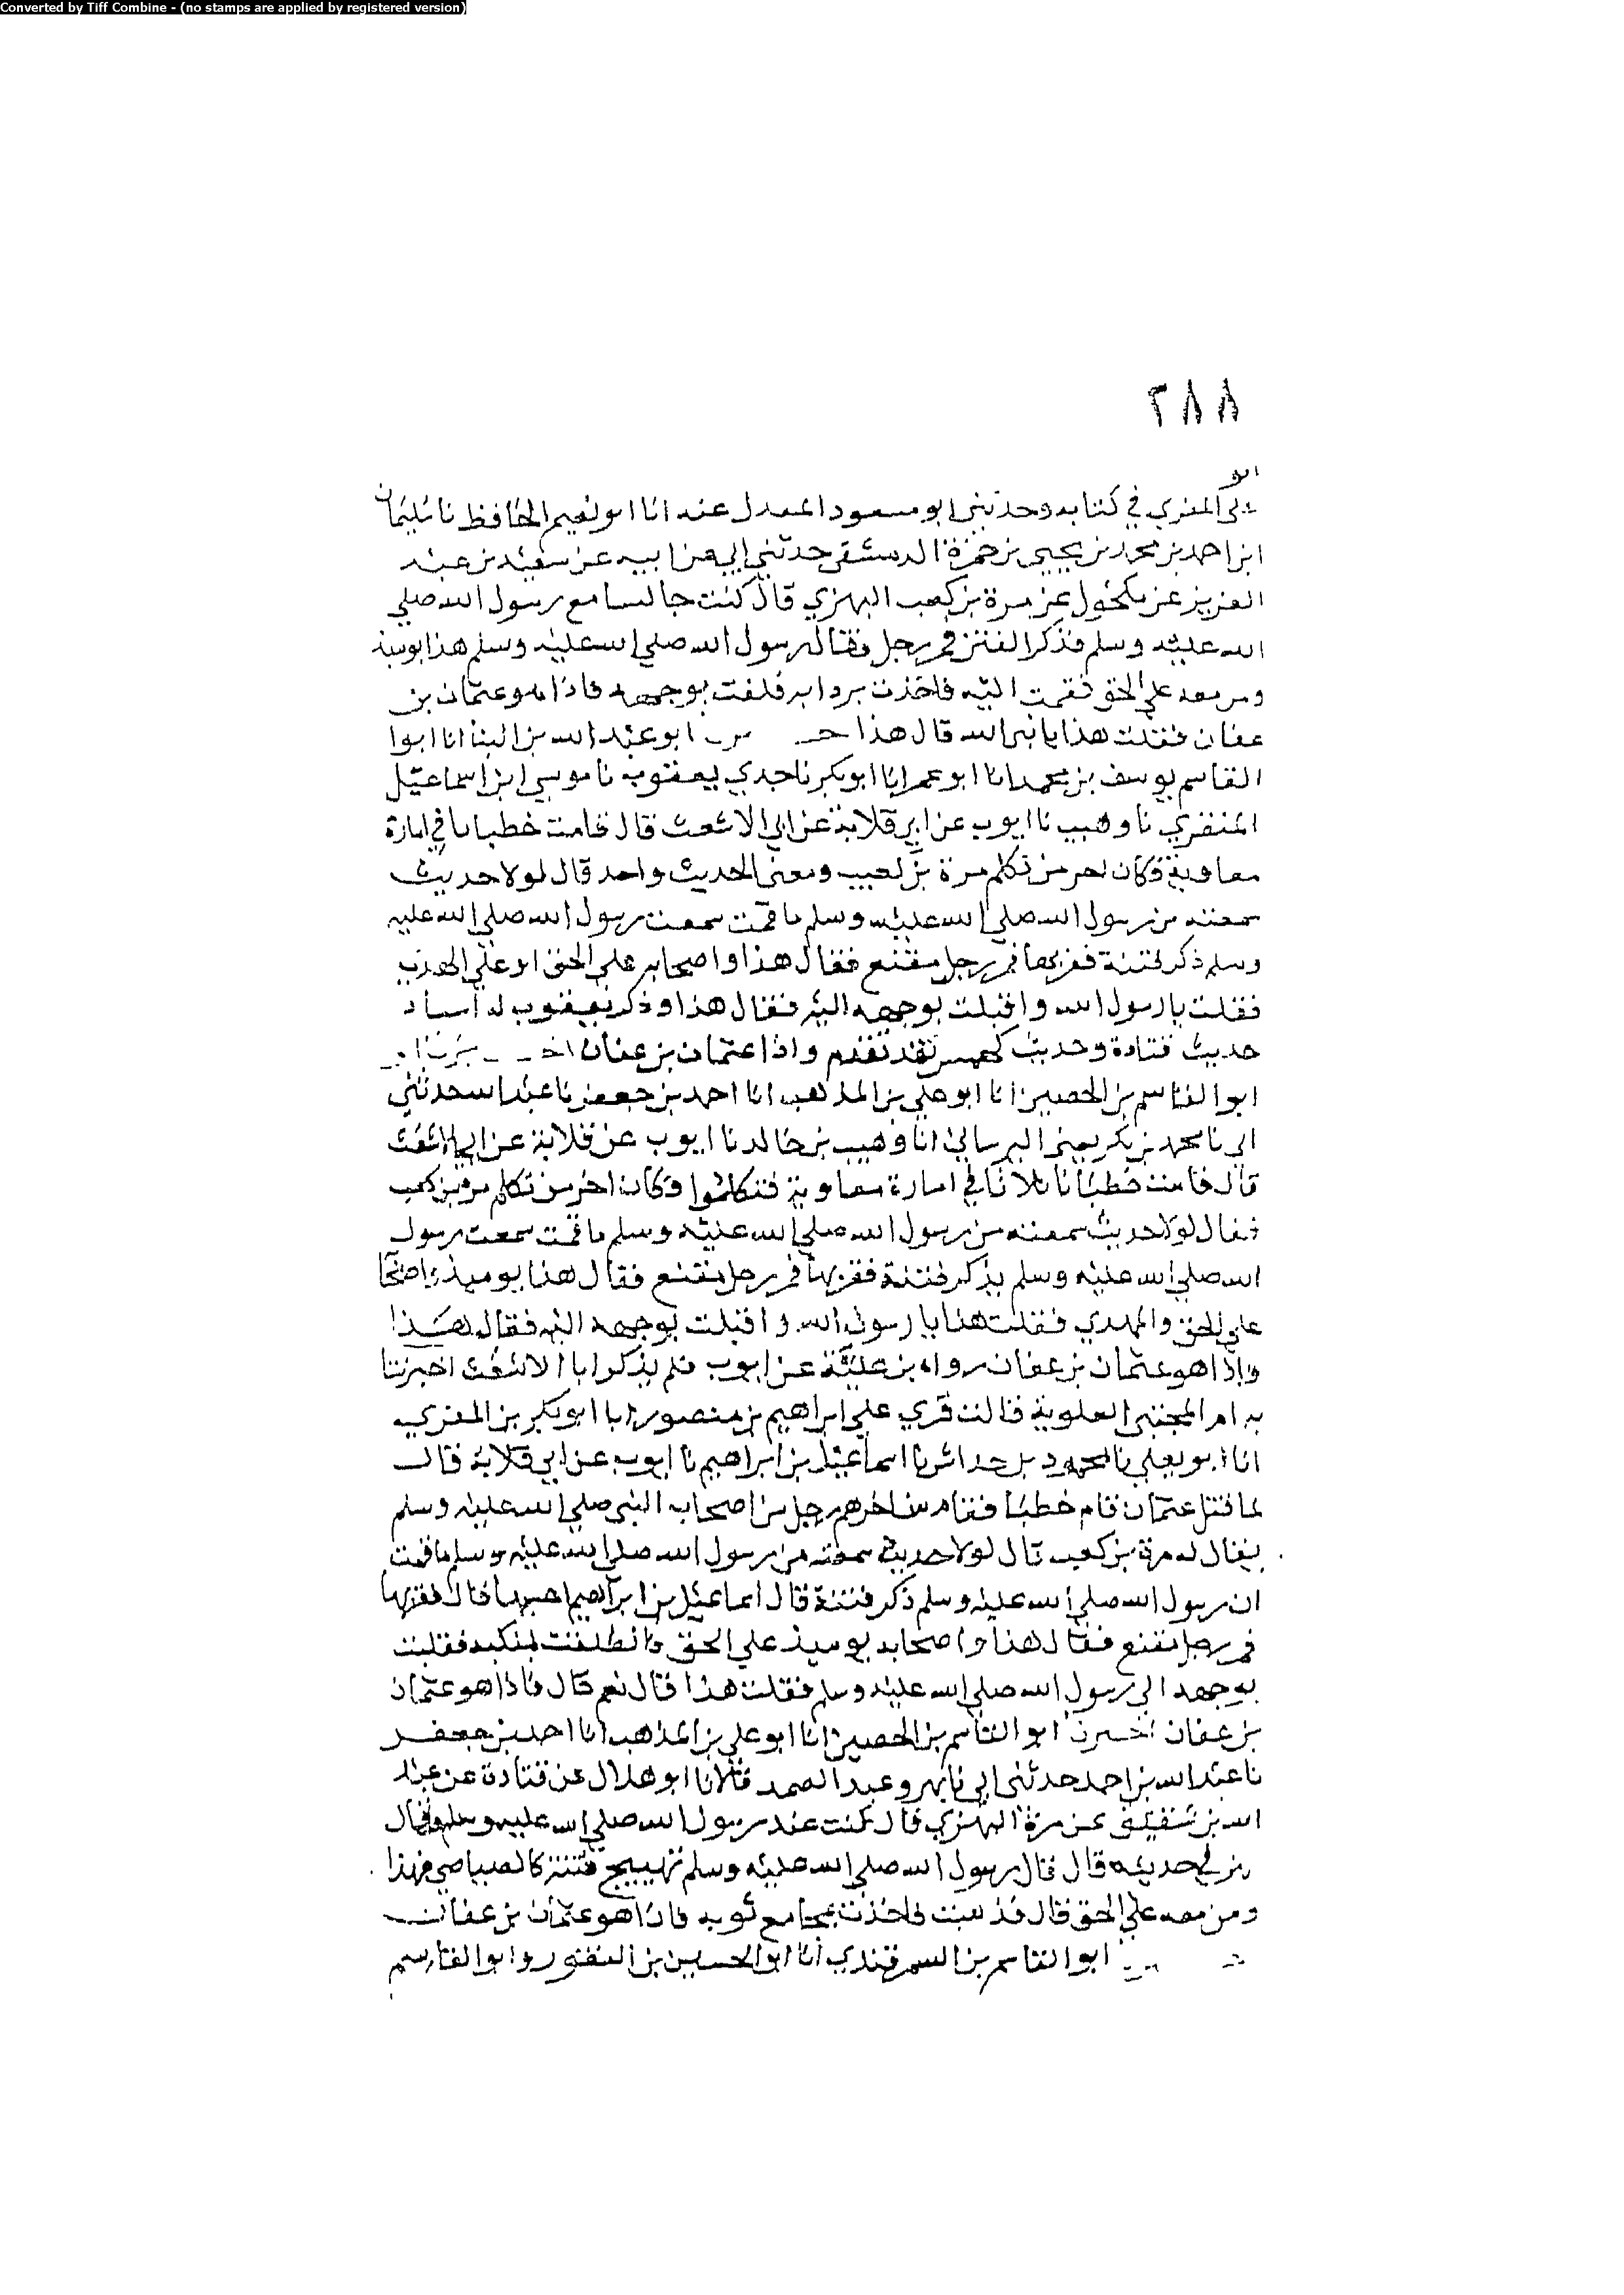 Converted by Tiff Combine - (no stamps are applied by registered version)
٢٨٨
ابو
علي المقري في كتابه وحدثني ابو مسعود المعدل عنه انا ابو نعيم الحافظ نا سليمان
ابن احمد بن محمد بن يحيى بن حمزة الدمشقي حدثني ابي عن ابيه عن سعيد بن عبد
العزيز عن مكحول عن مرة بن كعب البهزي قال كنت جالسا مع رسول الله صلي
الله عليه وسلم فذكر الفتن فمر رجل فقال رسول الله صلي الله عليه وسلم هذا يوميذ
ومن معه علي الحق فقمت اليه فاخذت بردايه فلفت بوجهه فاذا هو عثمان بن
عفان فقلت هذا يا نبي الله قال هذا ابو عبد الله بن البنا انا ابوا
القاسم يوسف بن محمد انا ابو عمر انا ابو بكر نا جدي يعقوب نا موسي ابن اسماعيل
المنقري نا وهيب نا ايوب عن ابي قلابة عن ابي الاشعث قال قامت خطبا في امارة
معاوية فكان اخر من تكلم مرة بن كعب ومعني الحديث واحد قال لولا حديث
سمعته من رسول الله صلي الله عليه وسلم ما قمت سمعت رسول الله صلي الله عليه
وسلم ذكر فتنة فقربها فمر رجل مقنع فقال هذا واصحابه علي الحق او علي الهدي
فقلت يا رسول الله واقبلت بوجهه اليه فقال هذا وذكر يعقوب له اسناد
حديث قتادة وحديث كهمس وقد تقدم واذا عثمان بن عفان
ابوا القاسم بن الحصين انا ابو علي بن المذهب انا احمد بن جعفر نا عبد الله حدثني
ابي نا محمد بن بكر يعني البرساني انا وهيب بن خالد نا ايوب عن قلابة عن ابي الاشعث
قال قامت خطبا في امارة معاوية فتكلموا وكان اخر من تكلم مرة بن كعب
فقال لولا حديث سمعته من رسول الله صلي الله عليه وسلم ما قمت سمعت رسول
الله صلي الله عليه وسلم يذكر فتنة فقربها فمر رجل مقنع فقال هذا يوميذ واصحابه
علي الحق والهدي فقلت هذا يا رسول الله واقبلت بوجهه اليه فقال هذا
واذا هو عثمان بن عفان رواه بن علية عن ايوب فلم يذكر ابا الاشعث اخبرتنا
به ام المجتبي العلوية قالت قري علي ابراهيم بن منصور انا ابو بكر بن المقري
انا ابو يعلي نا محمود بن خداش نا اسماعيل بن ابراهيم نا ايوب عن ابي قلابة قال
لما قتل عثمان قام خطبا فقام من اخرهم رجل من اصحاب النبي صلي الله عليه وسلم
يقال له مرة بن كعب قال لولا حديث سمعته من رسول الله صلي الله عليه وسلم ما قمت
ان رسول الله صلي الله عليه وسلم ذكر فتنة قال اسماعيل بن ابراهيم احسبه قال فقربها
فمر رجل مقنع فقال هذا واصحابه يوميذ علي الحق فانطلقت بمنكبه فقلبت
بوجهه الي رسول الله صلي الله عليه وسلم فقلت هذا قال نعم قال فاذا هو عثمان
بن عفان اخبرنا ابو القاسم بن الحصين انا ابو علي بن المذهب انا احمد بن جعفر
نا عبد الله بن احمد حدثني ابي نا بهز وعبد الصمد قالا نا ابو هلال عن قتادة عن عبد
الله بن شقيق عن مرة البهزي قال كنت عند رسول الله صلي الله عليه وسلم وقال
بهز في حديثه قال قال رسول الله صلي الله عليه وسلم تهييج فتنة كالصياصي فهذا
ومن معه علي الحق قال فذهبت فاخذت بمجامع ثوبه فاذا هو عثمان بن عفان
ابوا القاسم بن السمرقندي انا ابو الحسين بن النقور وابوا القاسم